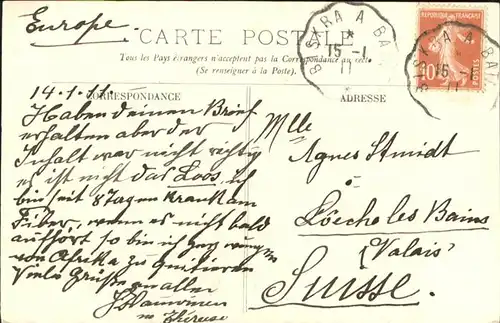 Europe
CARTE POSTALE
Tous les Pays étrangers n'acceptent pas la Correspondance au recto
(Se renseigner à la Poste).
BISKRA A BA
15 -1
11
BISKRA A BA
15 -1
11
REPUBLIQUE FRANÇAISE
10
POSTES
CORRESPONDANCE
ADRESSE
14.1.11.
Haben deinen Brief
erhalten aber der
Inhalt war nicht richtig
es ist nicht das Loos, ich
bin seit 8 Tagen Krank am
Fiber, wenn es nicht bald
aufhört so bin ich
von Afrika zu quitieren
Viele Grüße an alle
Thérese
Mlle
Agnes Stmidt
Löeche les Bains
(Valais)
Suisse.